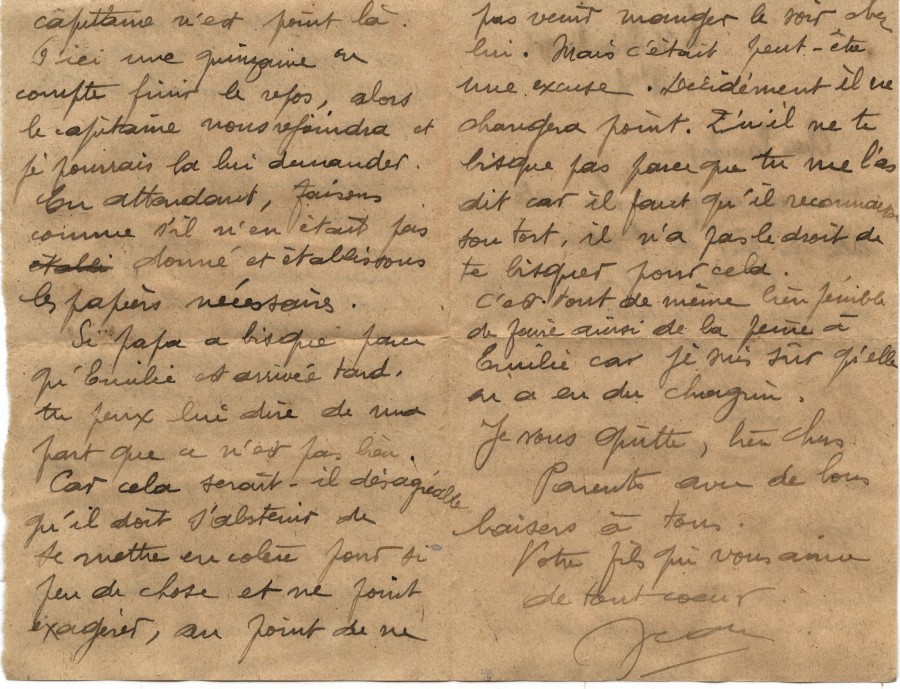 capitaine n'est point là.
D'ici une quinzaine on
compte finir le repos, alors
le capitaine nous rejoindra et
je pourrais la lui demander.
En attendant, faisons
comme s'il n'en était pas
établi donné et établissons
les papiers nécessaires.
Si papa a bisqué parce
qu'Emilie est arrivée tard,
tu peux lui dire de ma
part que ce n'est pas bien.
Car cela serait-il désagréable
qu'il doit s'abstenir de
se mettre en colère pour si
peu de chose et ne point
exagérer, au point de ne
pas venir manger le soir chez
lui. Mais c'était peut-être
une excuse. Décidément il ne
changera point. Qu'il ne te
bisque pas parce que tu me l'as
dit car il faut qu'il reconnaisse
son tort, il n'a pas le droit de
te bisquer pour cela.
C'est tout de même bien pénible
de faire ainsi de la peine à
Emilie car je suis sûr qu'elle
en a eu du chagrin.
Je vous quitte, bien chers
Parents avec de bons
baisers à tous.
Votre fils qui vous aime
de tout coeur
Jean